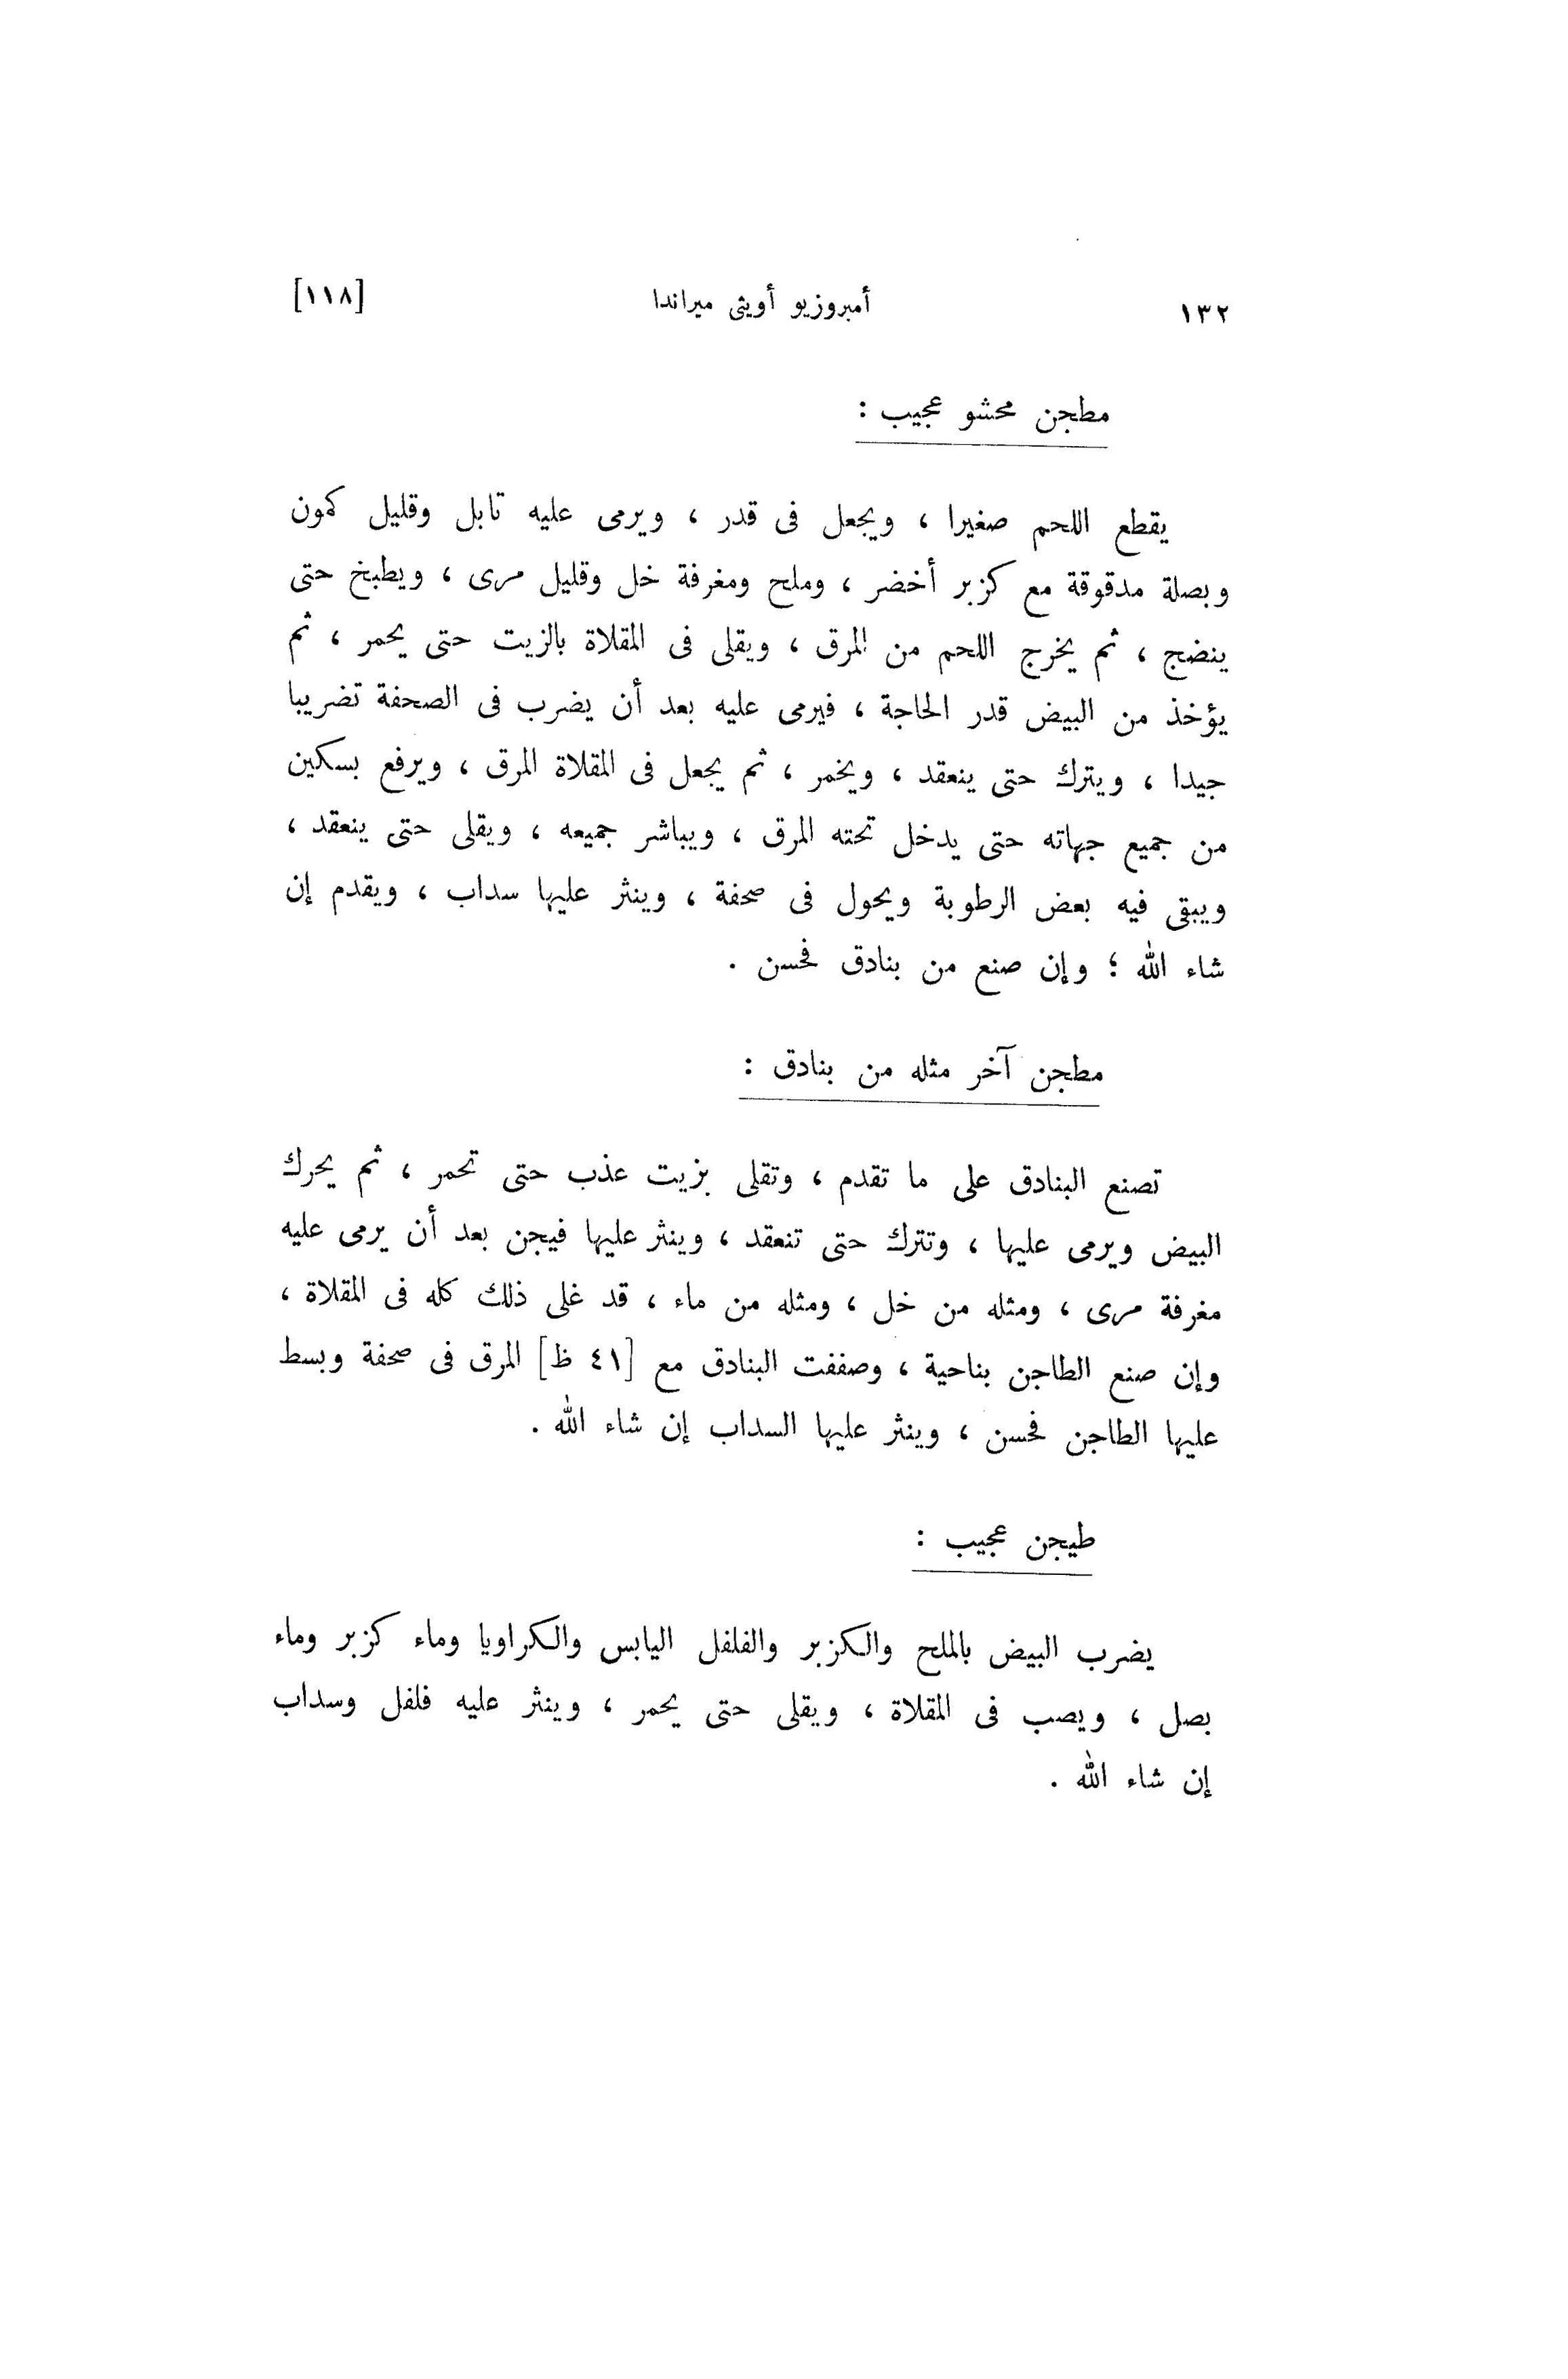 ١٣٢ أمبروزيو أويثى ميراندا [١١٨]
مطجن محشو عجيب :
يقطع اللحم صغيرا ، ويجعل فى قدر ، ويرمى عليه تابل وقليل كمون
وبصلة مدقوقة مع كزبر أخضر ، وملح ومغرفة خل وقليل مرى ، ويطبخ حتى
ينضج ، ثم يخرج اللحم من المرق ، ويقلى فى المقلاة بالزيت حتى يحمر ، ثم
يؤخذ من البيض قدر الحاجة ، فيرمى عليه بعد أن يضرب فى الصحفة تضريبا
جيدا ، ويترك حتى ينعقد ، ويخمر ، ثم يجعل فى المقلاة المرق ، ويرفع بسكين
من جميع جهاته حتى يدخل تحته المرق ، ويباشر جميعه ، ويقلى حتى ينعقد ،
ويبقى فيه بعض الرطوبة ويحول فى صحفة ، وينثر عليها سداب ، ويقدم إن
شاء الله ؛ وإن صنع من بنادق فحسن .
مطجن آخر مثله من بنادق :
تصنع البنادق على ما تقدم ، وتقلى بزيت عذب حتى تحمر ، ثم يحرك
البيض ويرمى عليها ، وتترك حتى تنعقد ، وينثر عليها فيجن بعد أن يرمى عليه
مغرفة مرى ، ومثله من خل ، ومثله من ماء ، قد غلى ذلك كله فى المقلاة ،
وإن صنع الطاجن بناحية ، وصففت البنادق مع [٤١ ظ] المرق فى صحفة وبسط
عليها الطاجن فحسن ، وينثر عليها السداب إن شاء الله .
طيجن عجيب :
يضرب البيض بالملح والكزبر والفلفل اليابس والكراويا وماء كزبر وماء
بصل ، ويصب فى المقلاة ، ويقلى حتى يحمر ، وينثر عليه فلفل وسداب
إن شاء الله .